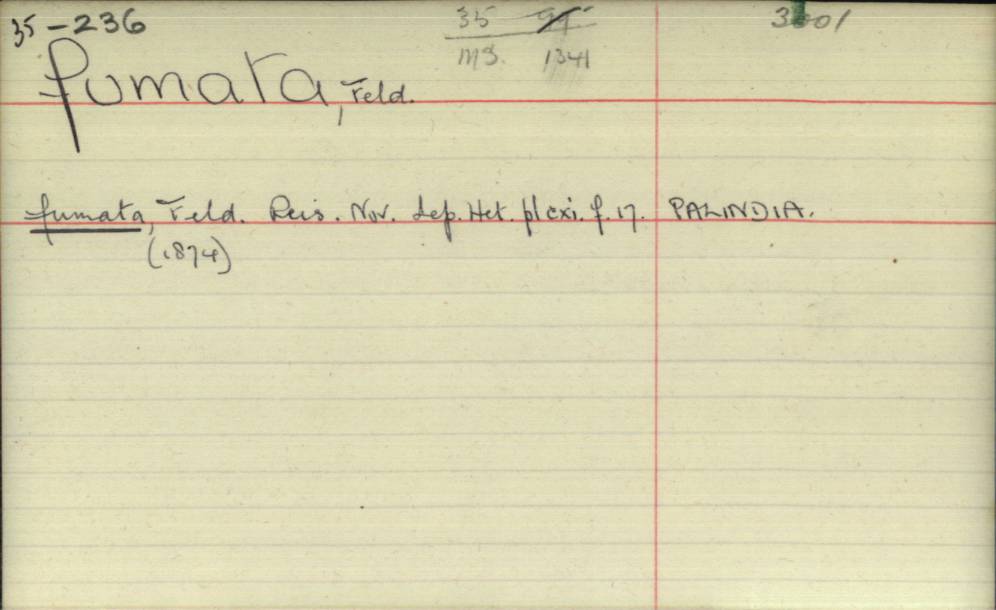 35-236
35
MS. 1341
fumata, Feld.
fumata, Feld. Reis. Nov. Lep. Het. pl cxi. f. 17. PALINDIA.
(1874)